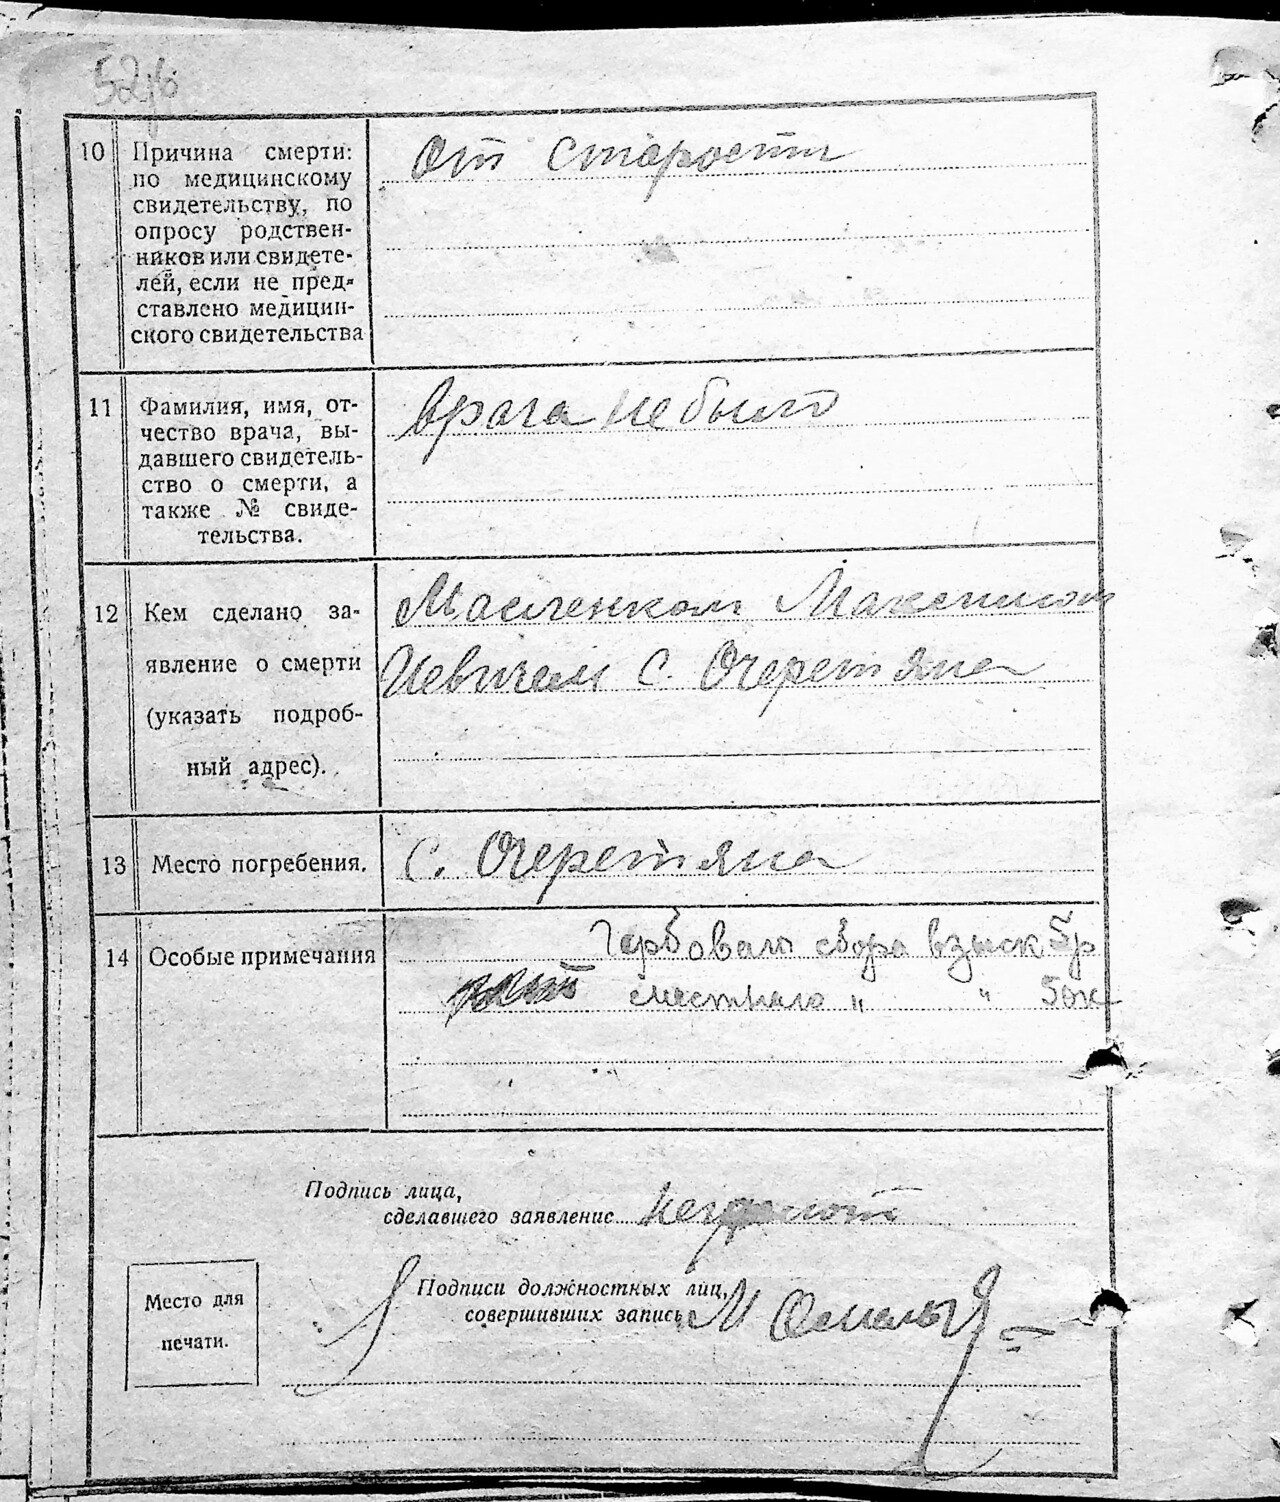 10 Причина смерти:
по медицинскому
свидетельству, по
опросу родствен-
ников или свидете-
лей, если не пред-
ставлено медицин-
ского свидетельства
От старости
11 Фамилия, имя, от-
чество врача, вы-
давшего свидетель-
ство о смерти, а
также № свиде-
тельства.
врага не было
12 Кем сделано за-
явление о смерти
(указать подроб-
ный адрес).
Максимом
с. Очеретяна
13 Место погребения.
с. Очеретяна
14 Особые примечания
Гербоваго сбора взыск 5р
местнаго " " 50к
Подпись лица,
сделавшего заявление
Место для
печати.
Подписи должностных лиц,
совершивших запись